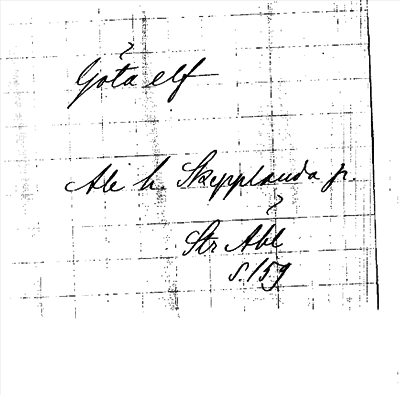 ?
Göta elf
Ale h. Skepplanda sn.
?
Str Abl
s. 159